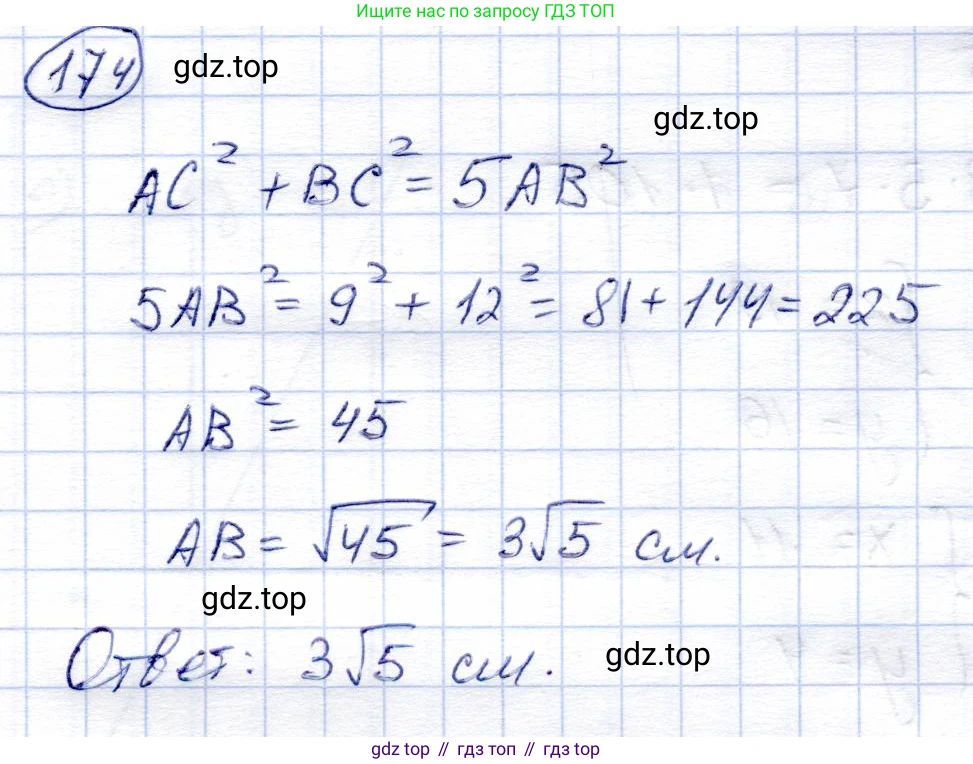 Ищите нас по запросу ГДЗ ТОП
174 gdz.top
gdz.top
AC² + BC² = 5AB²
5AB² = 9² + 12² = 81 + 144 = 225
AB² = 45
AB = √45 = 3√5 см.
gdz.top
Ответ: 3√5 см. gdz.top
gdz top // гдз топ // gdz top